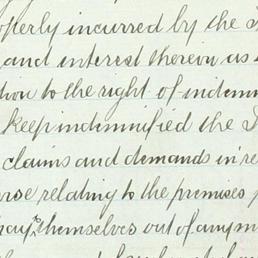 operly incurred by the
and interest thereon as
tion to the right of indemn
keep indemnified the
claims and demands in re
rse relating to the premises
pay themselves out of any m